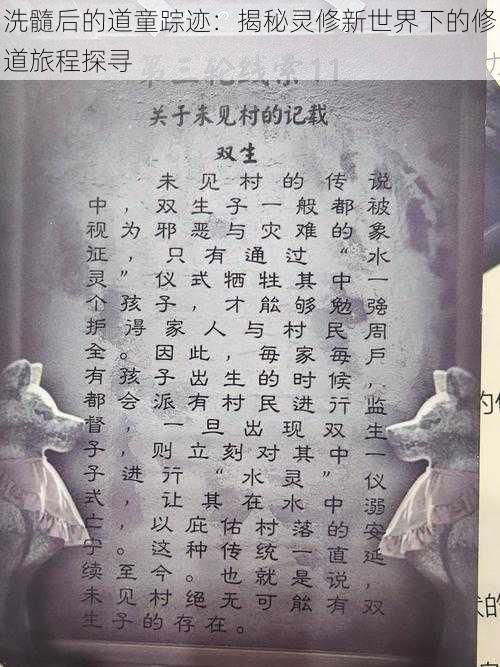 洗髓后的道童踪迹：揭秘灵修新世界下的修
道旅程探寻
第三轮线索11
关于未见村的记载
双生
未见村的传说
中，双生子一般都被
视为邪恶与灾难的象
征，只有通过“水
灵”仪式牺牲其中一
个孩子，才能够勉强
护得家人与村民周
全。因此，每家每户，
有孩子出生的时候
都会派有村民进行监
督，一旦出现双生
子，则立刻对其中一
子进行“水灵”仪
式，让其在水中溺
亡，以庇佑村落安
宁。这种传统一直延
续至今。也就是说，
未见村绝无可能有双
生子的存在。